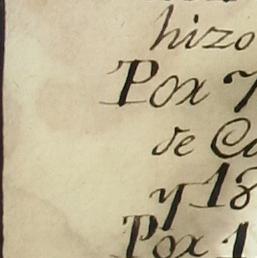 hizo
Por 7
de Ca
y 18
Por 1